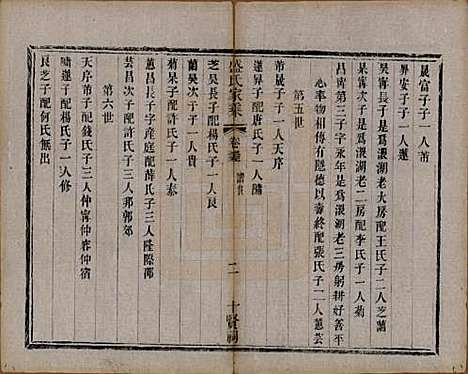 晟富子子一人芾
昇安子子一人暹
吳甯長子是爲濲湖老大房配王氏子二人芝菖
杲甯次子是爲濲湖老二房配李氏子一人菊
昌甯第三子字永年是爲濲湖老三房躬耕好善平
心率物相傳有隱德以壽終配張氏子二人蕙芸
第五世
芾晟子子一人天序
暹昇子配唐氏子一人
盛氏家乘
卷 譜世
二
十賢祠
芝吳長子配楊氏子一人艮
菖吳次子子一人貴
菊杲子配許氏子一人泰
蕙昌長子字産庭配薛氏子三人隆際
芸昌次子配許氏子三人邦郭郊
第六世
天序芾子配錢氏子三人仲甯仲容仲宿
暹子配楊氏子一人修
艮芝子配何氏無出